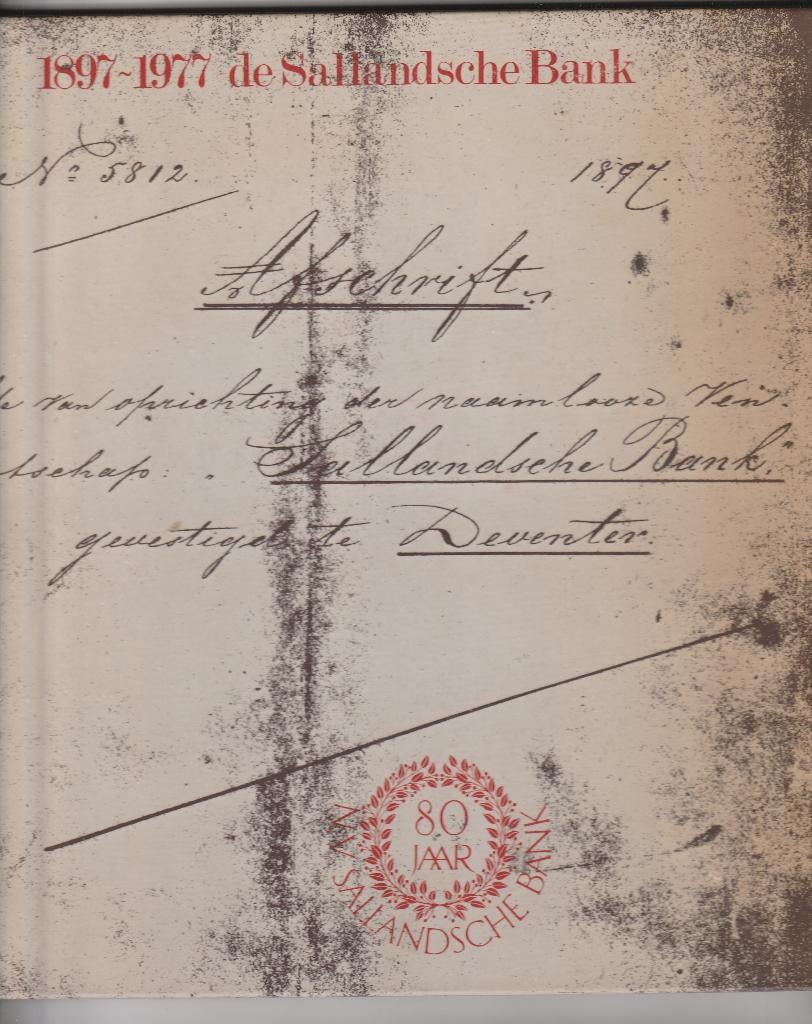 1897~1977 de Sallandsche Bank
Nº 5812.
1897
Afschrift.
van oprichting der naamlooze Ven-
tschap: "Sallandsche Bank."
gevestigd te Deventer.
80
JAAR
NV SALLANDSCHE BANK